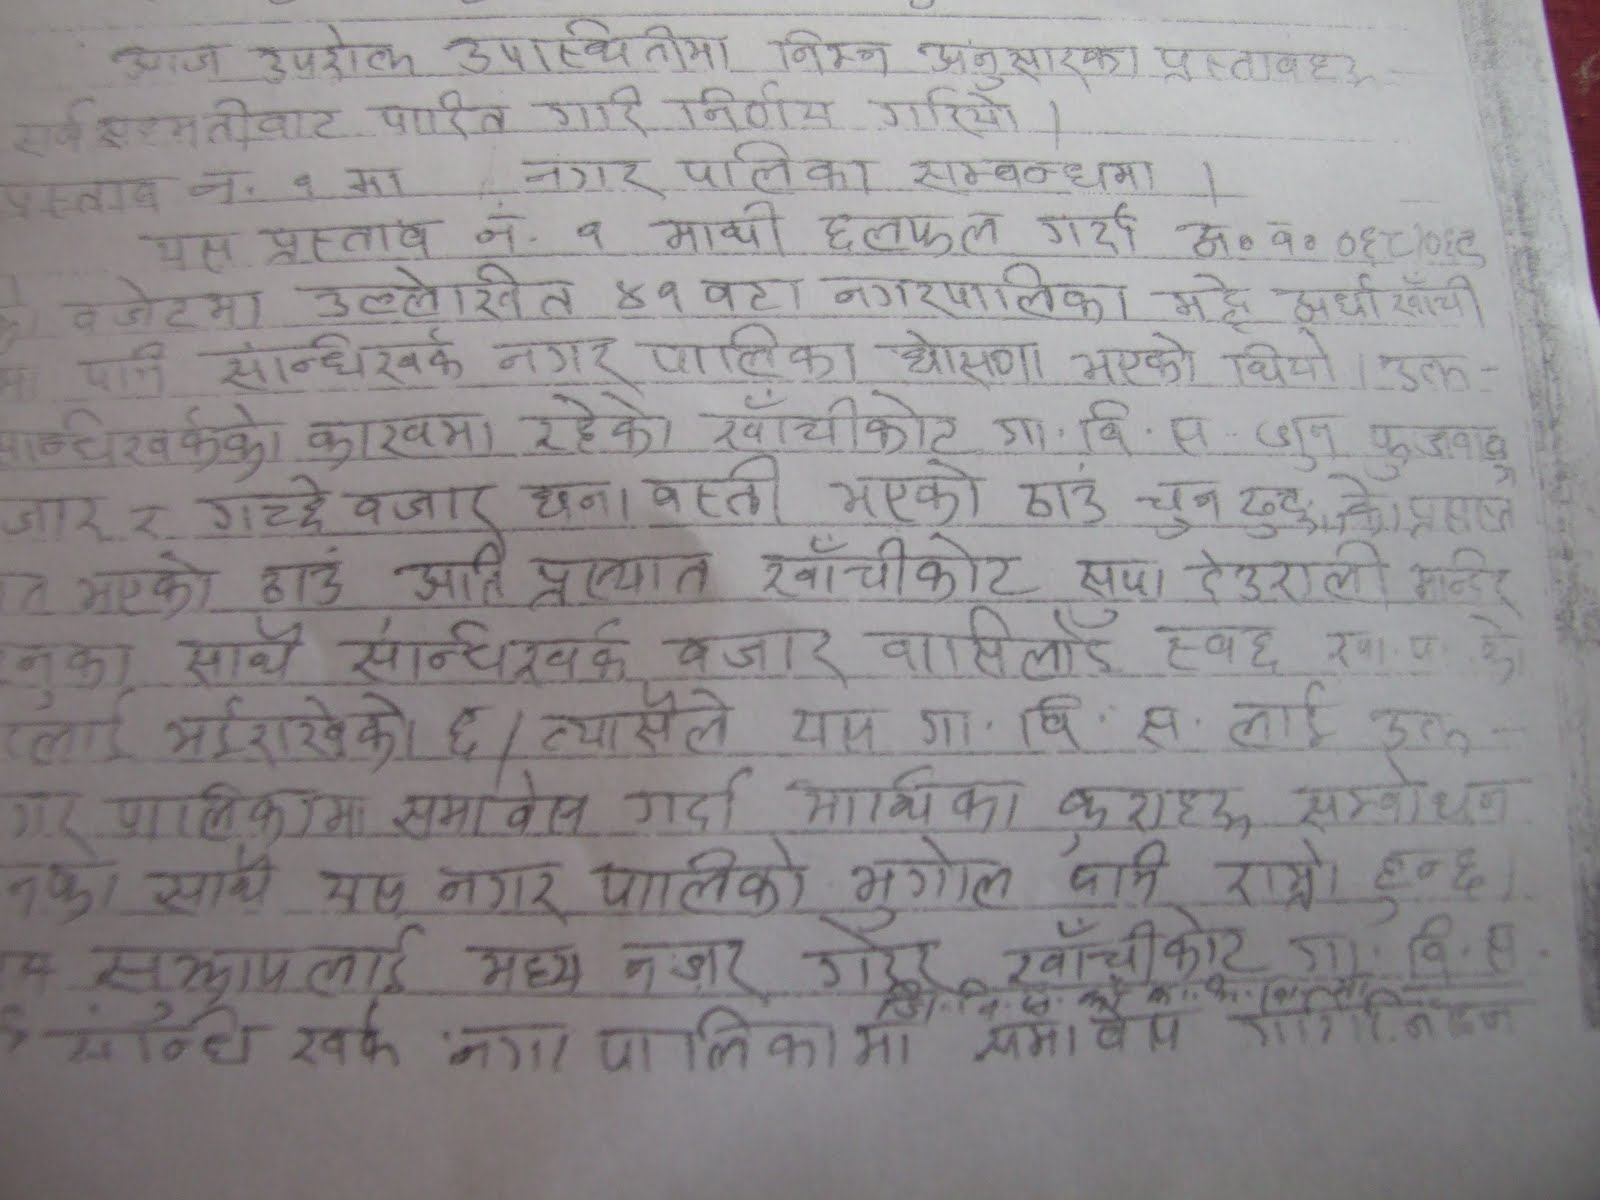 आज उपरोक्त उपस्थितीमा निम्न अनुसारका प्रस्तावहरू
सर्वसहमतीवाट पारित गरि निर्णय गरियो ।
प्रस्ताव नं. १ मा नगर पालिका सम्बन्धमा ।
यस प्रस्ताव नं. १ माथी छलफल गर्दा आ.व. ०६८/०६९
वजेटमा उल्लेखित ४१ वटा नगरपालिका मद्दे अर्घाखाँची
मा पनि सन्धिखर्क नगर पालिका घोसणा भएको थियो । उक्त -
सन्धिखर्कको काखमा रहेको खाँचीकोट गा.वि.स. जुन
जार र गच्दे वजार घना वस्ती भएको ठाउं
भएको ठाउं अति प्रख्यात खाँचीकोट सपा देउराली मन्दिर
नुका साथै सन्धिखर्क वजार वासिलाई स्वछ खा.प. को
लाई भईराखेको छ । त्यासैले यस गा.वि.स. लाई उक्त -
गर पालिकामा समावेस गर्दा माथिका कुराहरू सम्बोधन
नका साथै यस नगर पालिको भुगोल पनि राम्रो हुन्छ ।
सुझापलाई मध्य नजर गरेर खाँचीकोट गा.वि.स.
सन्धि खर्क नगर पालिकामा समावेस